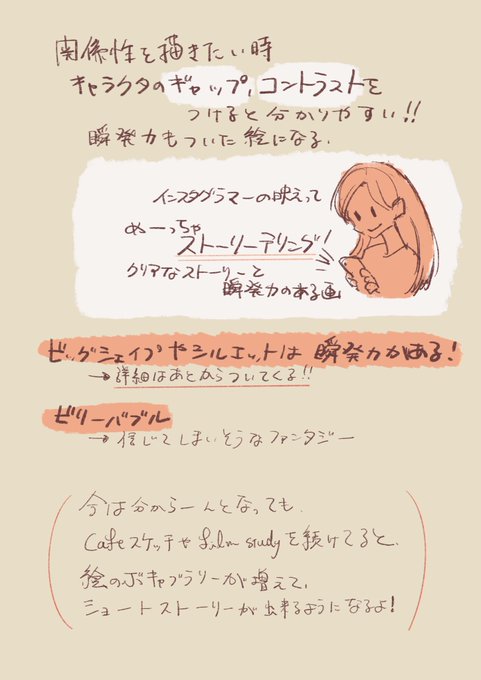 関係性を描きたい時
キャラクタのギャップ,コントラストを
つけると分かりやすい!!
瞬発力もついた絵になる.
インスタグラマーの映えって
めーっちゃ
ストーリーテリング!
クリアなストーリーと
瞬発力のある画
ビッグシェイプやシルエットは瞬発力がある!
→詳細はあとからついてくる!!
ビリーバブル
→信じてしまいそうなファンタジー
今は分からーんとなっても.
Cafeスケッチやfilm studyを続けてると.
絵のボキャブラリーが増えて.
ショートストーリーが出来るようになるよ!